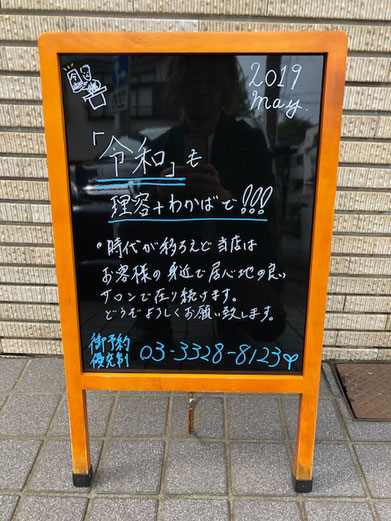 2019
may.
令
「令和」も
理容+わかばで!!!
•時代が移ろえど当店は
お客様の身近で居心地の良い
サロンで在り続けます。
どうぞよろしくお願い致します。
御予約
優先制
03-3328-8123